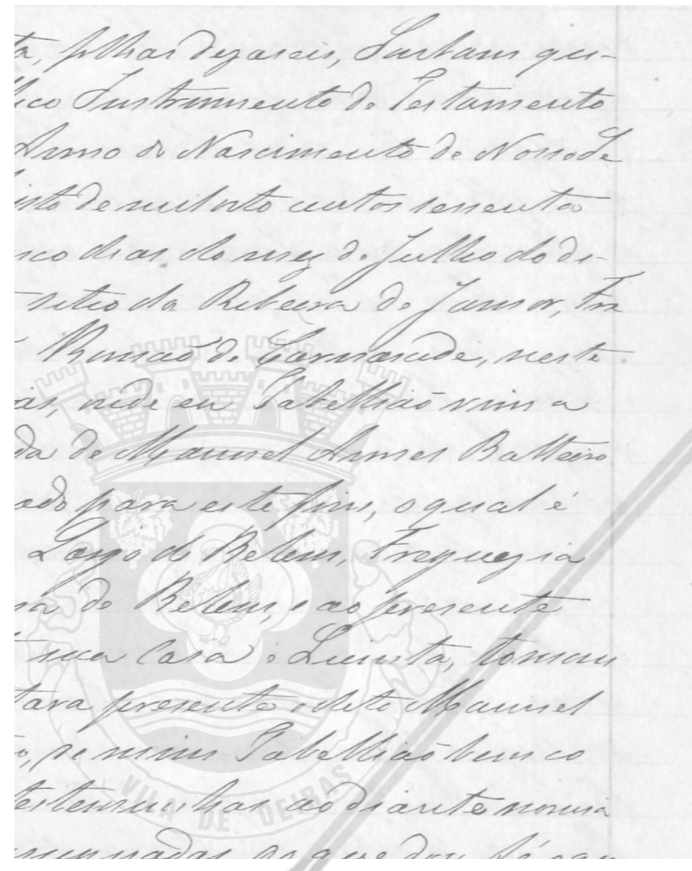 folhas dezaseis, Saibam qu-
Instrumento de Testamento
Anno do Nascimento de Nosso Se
de mil oito centos sessenta
dias do mez de Julho do di-
sitio da Ribeira de Jamor, Fre
de Carnaxide, neste
aonde eu Tabellião vim a
de Manuel Antes Balteiro
para este fim, o qual é
Largo de Belem, Freguezia
de Belem, e ao presente
sua Casa e Quinta, tomam
presente o dito Manuel
de mim Tabellião bem co
testemunhas ao diante nomia
que dou fé
VILA DE OEIRAS